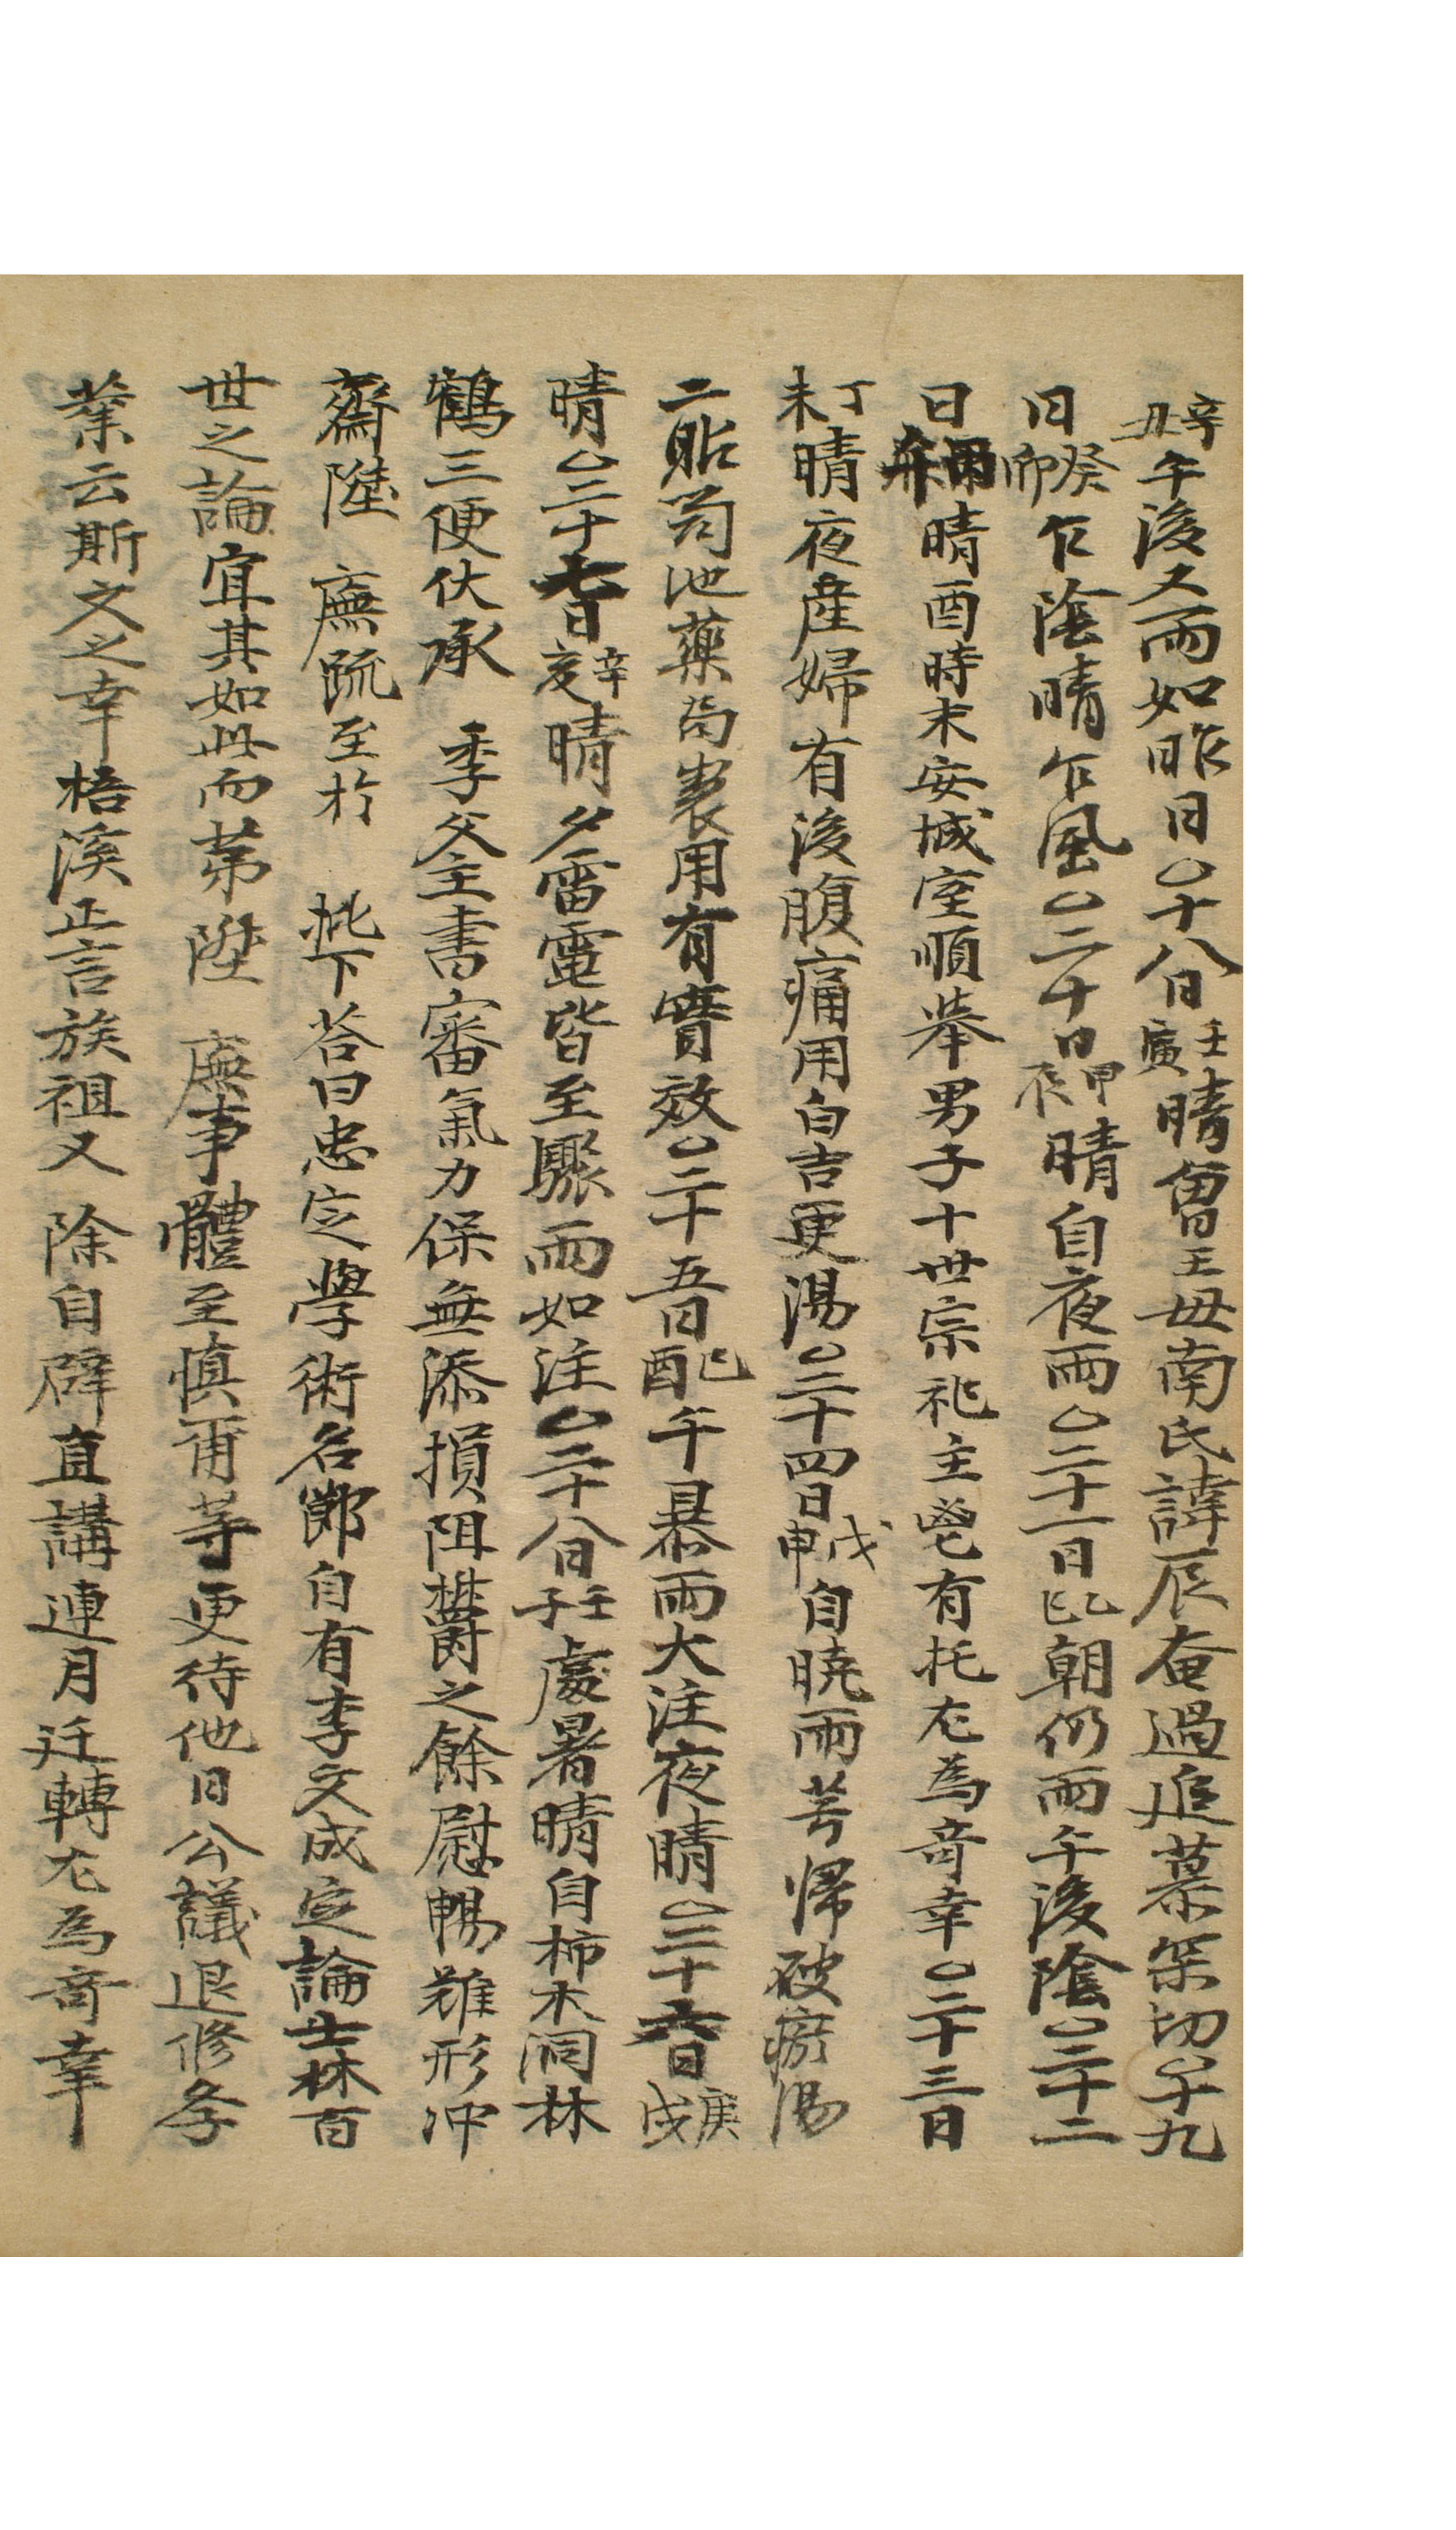 辛丑午後又雨如昨日○十八日壬寅晴曾王母南氏諱辰奄過追慕深切○十九
日癸卯乍陰晴乍風○二十日甲辰晴自夜雨○二十一日乙巳朝仍雨午後陰○二十二
日丙午晴酉時末安城室順举男子十世宗祀主鬯有托尤為奇幸○二十三日
丁未晴夜産婦有後腹痛用白吉更湯○二十四日戊申自曉雨芎帰破瘀湯
二貼笥池藥局製用有實效○二十五日己酉午暴雨大注夜晴○二十六日庚戌
晴○二十七日辛亥晴夕雷電皆至驟雨如注○二十八日壬子處暑晴自柿木洞林
鶴三便伏承 季父主書審氣力保無添損阻欝之餘慰暢難形冲
齋陞 廡疏至於 批下答曰忠定學術名節自有李文成定論士林百
世之論宜其如此而第陞 廡事體至慎爾等更待他日公議退修孝
業云斯文之幸梧溪正言族祖又 除自辟直講連月迁轉尤為奇幸